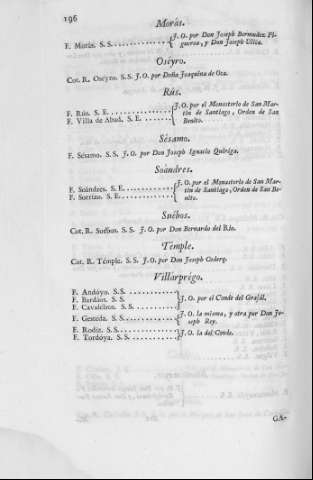 196
Morás.
F. Morás. S. S. . . . . . . . . . . . . { J. O. por Don Joseph Bermudez Fi-
gueroa, y Don Joseph Ulloa.
Oséyro.
Cot. R. Oseyro. S. S. J. O. por Doña Joaquina de Oca.
Rús.
F. Rús. S. E. . . . . . . . . . . . . . { J. O. por el Monasterio de San Mar-
F. Villa de Abad. S. E. . . . . . . . tin de Santiago, Orden de San
Benito.
Sésamo.
F. Sésamo. S. S. J. O. por Don Joseph Ignacio Quiróga.
Soándres.
F. Soándres. S. E. . . . . . . . . . . { J. O. por el Monasterio de San Mar-
F. Sorrizo. S. E. . . . . . . . . . . . tin de Santiago, Orden de San Be-
nito.
Suébos.
Cot. R. Suébos. S. S. J. O. por Don Bernardo del Rio.
Témple.
Cot. R. Témple. S. S. J. O. por Don Joseph
Villarprégo.
F. Andóyo. S. S. . . . . . . . . . . .
F. Bardáos. S. S. . . . . . . . . . . . } J. O. por el Conde del Grajál.
F. Cavaléiros. S. S. . . . . . . . . .
F. Gesteda. S. S. . . . . . . . . . . . { J. O. la misma, y otra por Don Jo-
seph Rey.
F. Rodís. S. S. . . . . . . . . . . . . } J. O. la del Conde.
F. Tordoya. S. S. . . . . . . . . . . .
GA-